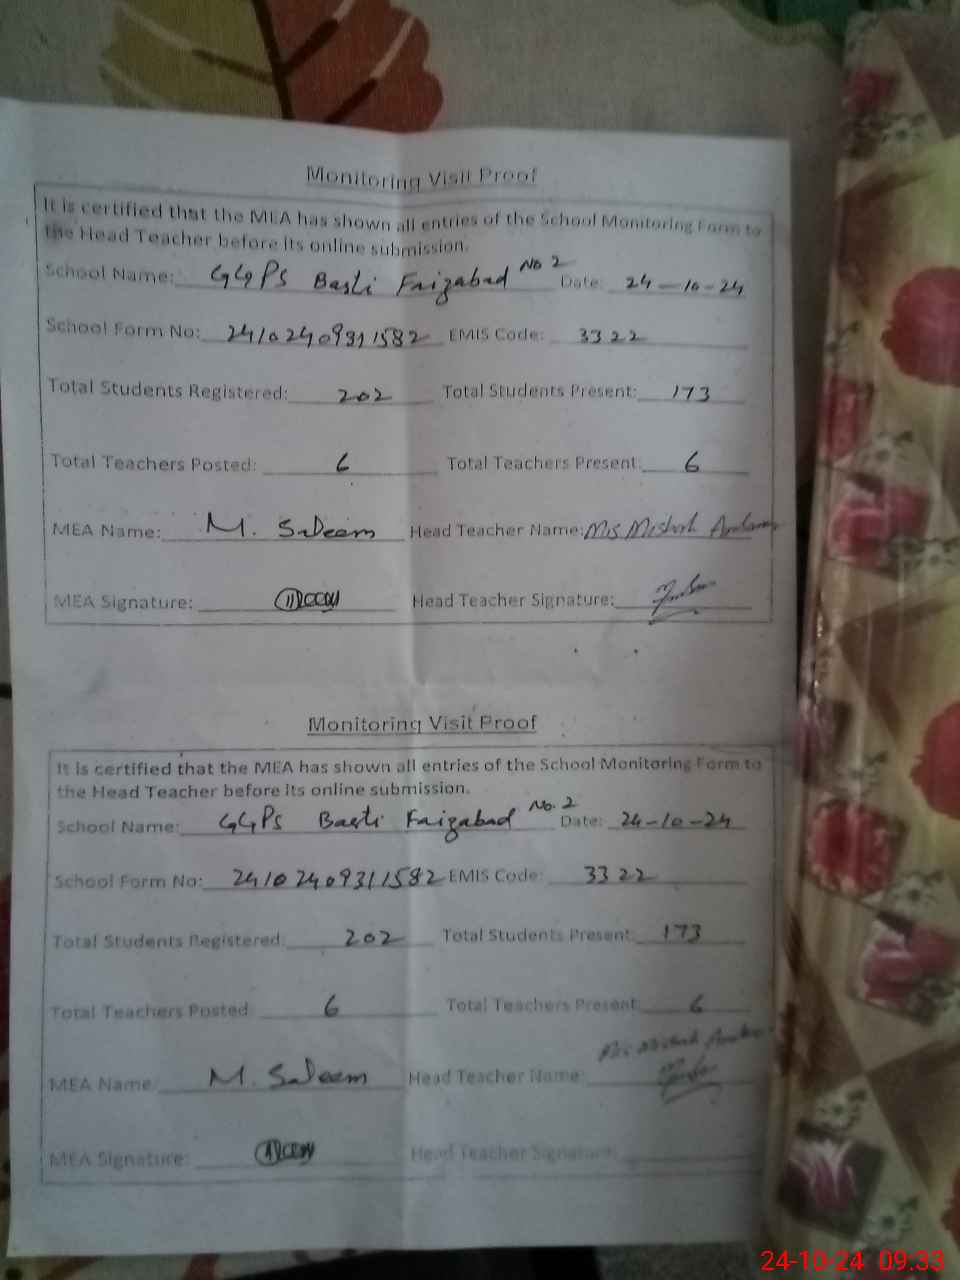 Monitoring Visit Proof
It is certified that the MEA has shown all entries of the School Monitoring Form to
the Head Teacher before its online submission.
School Name: GGPS Basti Faizabad No 2 Date: 24-10-24
School Form No: 24102409311582 EMIS Code: 3322
Total Students Registered: 202 Total Students Present: 173
Total Teachers Posted: 6 Total Teachers Present: 6
MEA Name: M. Saleem Head Teacher Name: Mis Misbah
MEA Signature: Head Teacher Signature:
Monitoring Visit Proof
It is certified that the MEA has shown all entries of the School Monitoring Form to
the Head Teacher before its online submission.
School Name: GGPS Basti Faizabad No. 2 Date: 24-10-24
School Form No: 24102409311582 EMIS Code: 3322
Total Students Registered: 202 Total Students Present: 173
Total Teachers Posted 6 Total Teachers Present 6
MEA Name: M. Saleem Head Teacher Name: Mis Misbah
MEA Signature: Head Teacher Signature:
24-10-24 09:33